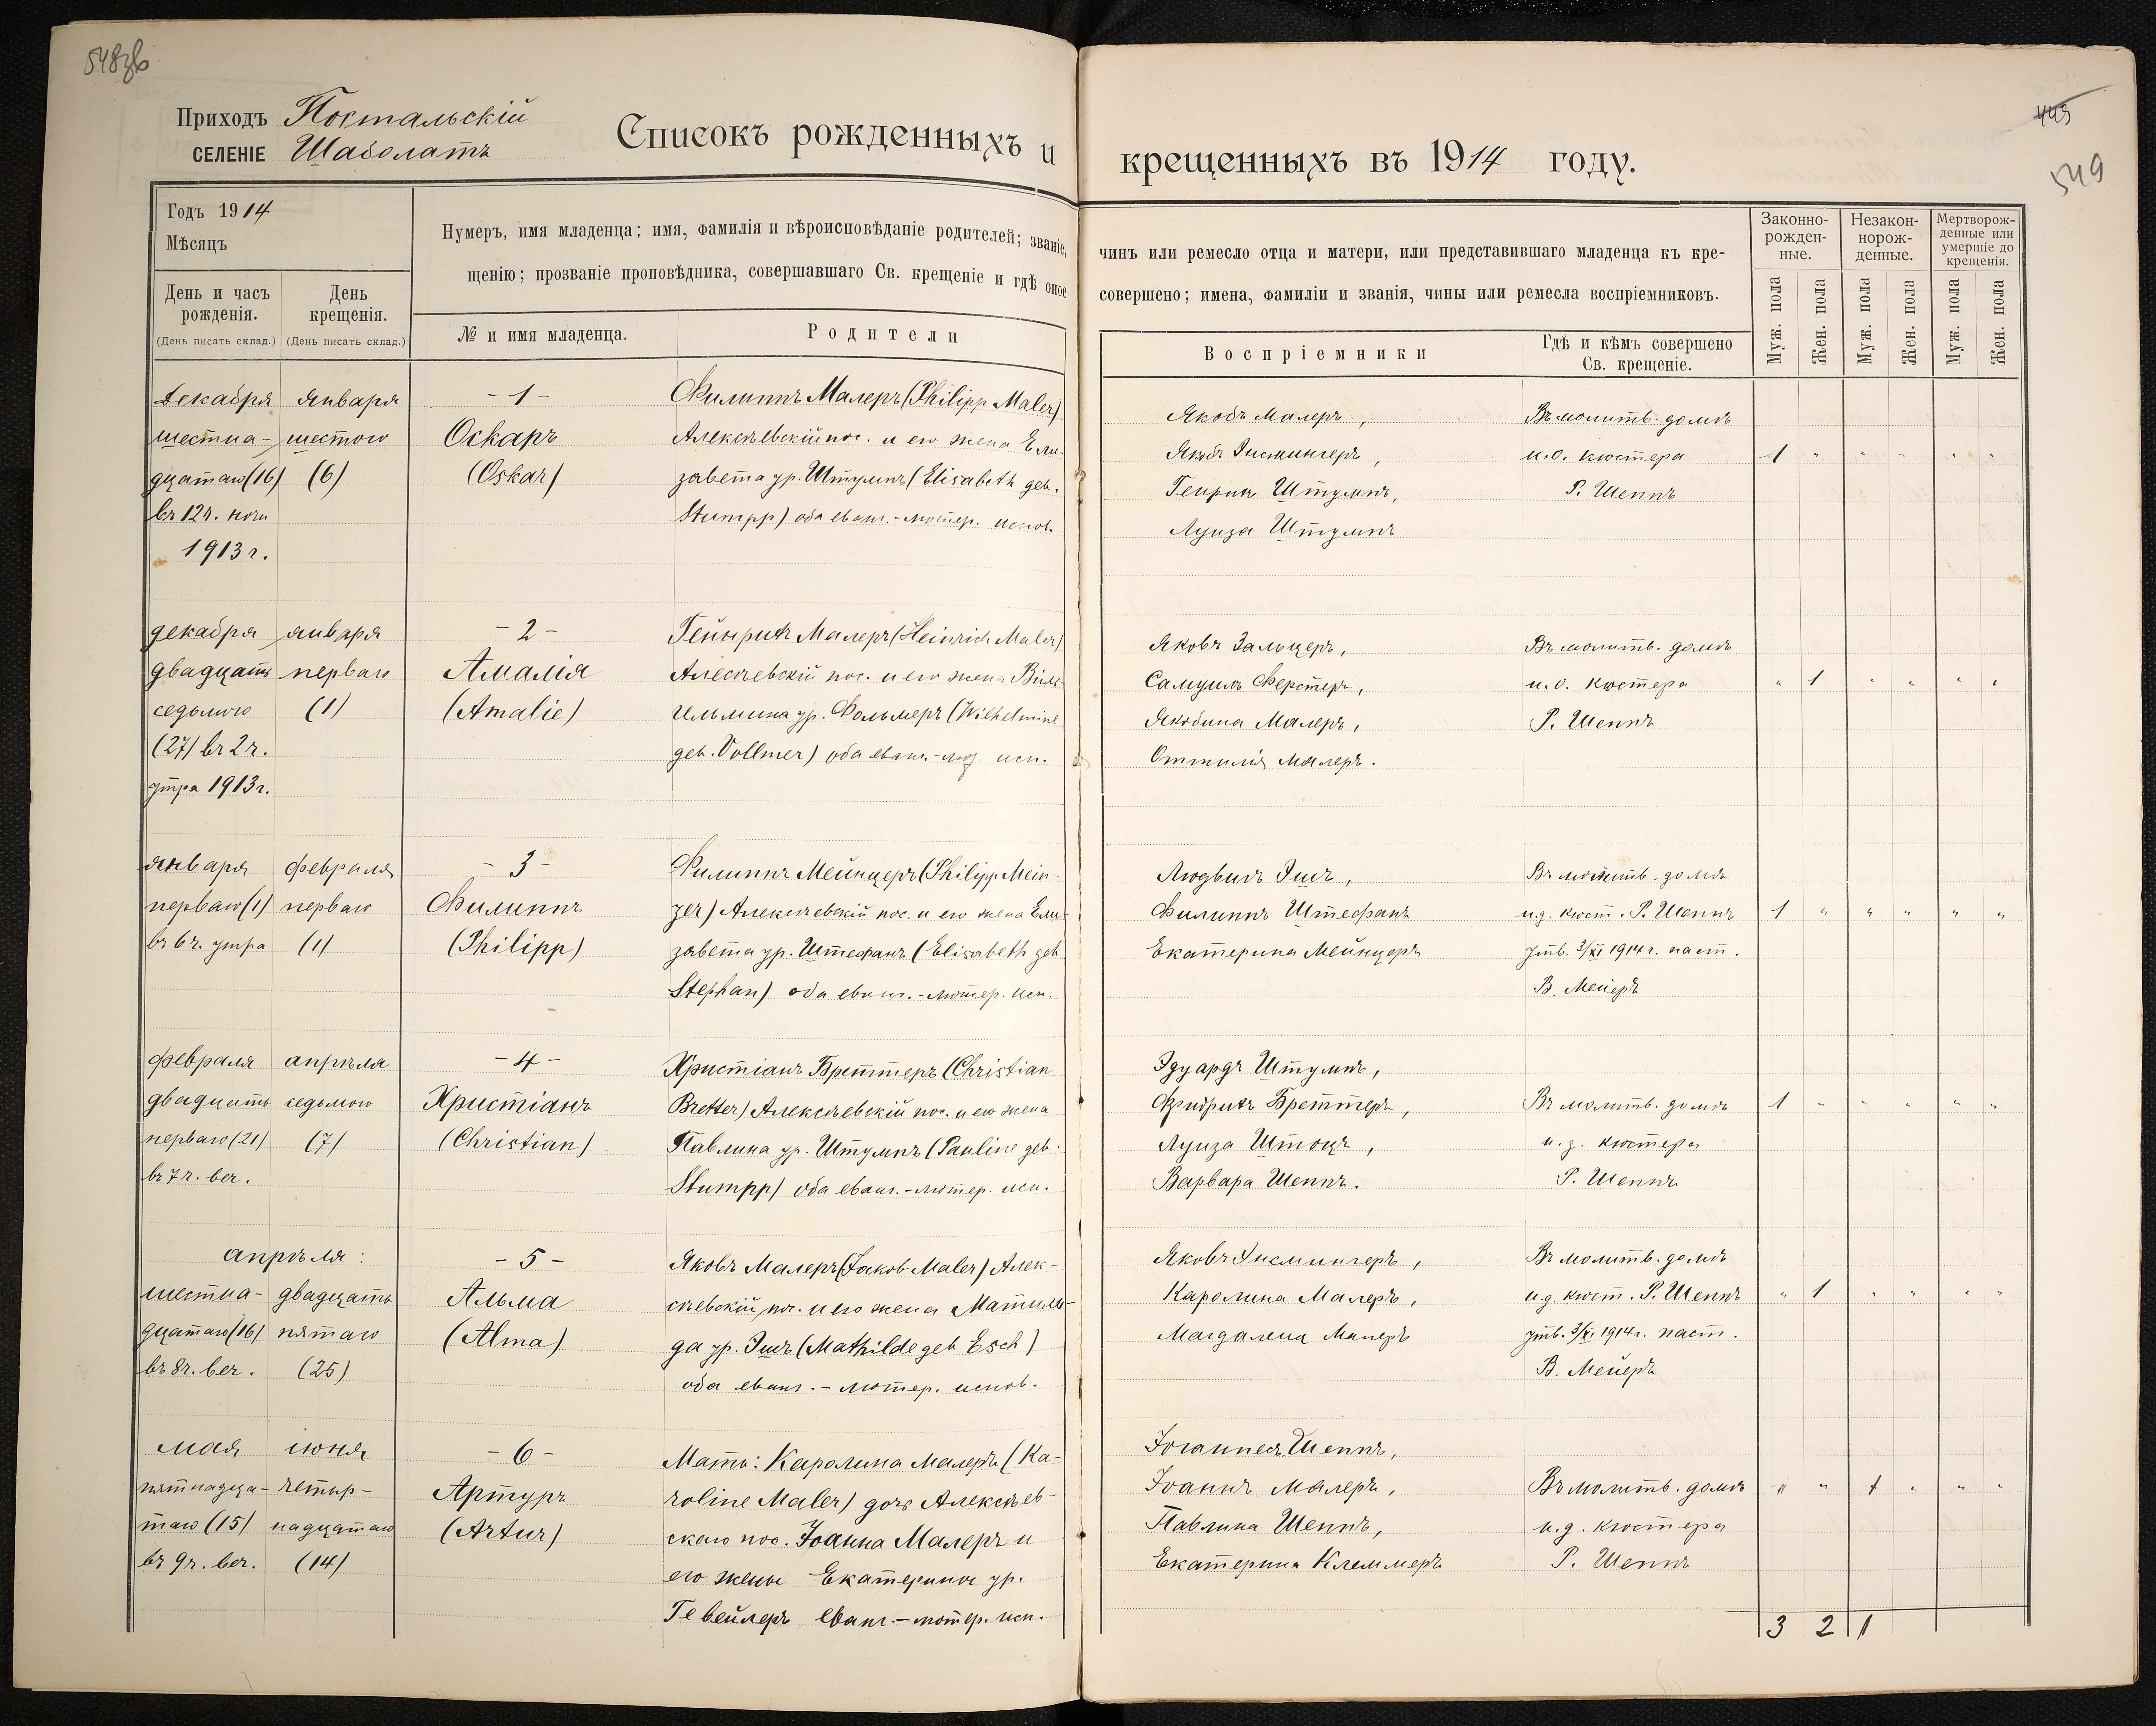 548зв
443
549
Приходъ Постальскій
СЕЛЕНІЕ Шаболатъ
Списокъ рожденныхъ и крещенныхъ въ 1914 году.
Годъ 1914
Мѣсяцъ
День и часъ рожденія.
(День писать склад.)
День крещенія.
(День писать склад.)
Нумеръ, имя младенца; имя, фамилія и вѣроисповѣданіе родителей; званіе, чинъ или ремесло отца и матери, или представившаго младенца къ кре-
щенію; прозваніе проповѣдника, совершавшаго Св. крещеніе и гдѣ оное совершено; имена, фамиліи и званія, чины или ремесла воспріемниковъ.
№ и имя младенца.
Родители
Воспріемники
Гдѣ и кѣмъ совершено Св. крещеніе.
Законно-рожден-ные.
Незакон-норож-денные.
Мертворож-денные или умершіе до крещенія.
Муж. пола
Жен. пола
Муж. пола
Жен. пола
Муж. пола
Жен. пола
декабря
шестна-
дцатаго (16)
въ 12 ч. ночи
1913 г.
января
шестого
(6)
- 1 -
Оскаръ
(Oskar)
Филиппъ Малеръ (Philipp Maler)
Алексѣевскій пос. и его жена Ели-
завета ур. Штумпъ (Elisabeth geb.
Stumpp) оба еванг.-лютер. испов.
Якобъ Малеръ,
Якобъ Эисмингеръ,
Генрихъ Штумпъ,
Луиза Штумпъ
Въ молитв. домѣ
и.о. кюстера
Р. Шеппъ
1 " " " " "
декабря
двадцать
седьмого
(27) въ 2 ч.
утра 1913 г.
января
перваго
(1)
- 2 -
Амалія
(Amalie)
Гейнрихъ Малеръ (Heinrich Maler)
Алексѣевскій пос. и его жена Виль-
гельмина ур. Фольмеръ (Wilhelmine
geb. Vollmer) оба еванг.-лют. исп.
Яковъ Зальцеръ,
Самуилъ Ферстеръ,
Якобина Малеръ,
Оттилія Малеръ.
Въ молитв. домѣ
и.о. кюстера
Р. Шеппъ
" 1 " " " "
января
перваго (1)
въ 6 ч. утра
февраля
перваго
(1)
- 3 -
Филиппъ
(Philipp)
Филиппъ Мейнцеръ (Philipp Mein-
zer) Алексѣевскій пос. и его жена Ели-
завета ур. Штефанъ (Elisabeth geb
Stephan) оба еванг.-лютер. исп.
Людвигъ Эшъ,
Филиппъ Штефанъ
Екатерина Мейнцеръ
Въ молитв. домѣ
и.д. кюст. Р. Шеппъ
утв. 3/XI 1914 г. паст.
В. Мейеръ
1 " " " " "
февраля
двадцать
перваго (21)
въ 7 ч. веч.
апрѣля
седьмого
(7)
- 4 -
Христіанъ
(Christian)
Христіанъ Бреттеръ (Christian
Bretter) Алексѣевскій пос. и его жена
Павлина ур. Штумпъ (Pauline geb.
Stumpp) оба еванг.-лютер. исп.
Эдуардъ Штумпъ,
Фридрихъ Бреттеръ,
Луиза Штоцъ,
Варвара Шеппъ.
Въ молитв. домѣ
и.д. кюстера
Р. Шеппъ
1 " " " " "
апрѣля:
шестна-
дцатаго (16)
въ 8 ч. веч.
двадцать
пятаго
(25)
- 5 -
Альма
(Alma)
Яковъ Малеръ (Jakob Maler) Алек-
сѣевскій пос. и его жена Матиль-
да ур. Эшъ (Mathilde geb Esch)
оба еванг.-лютер. испов.
Яковъ Эисмингеръ,
Каролина Малеръ,
Магдалена Малеръ
Въ молитв. домѣ
и.д. кюст. Р. Шеппъ
утв. 3/XI 1914 г. паст.
В. Мейеръ
" 1 " " " "
мая
пятнадца-
таго (15)
въ 9 ч. веч.
іюня
четыр-
надцатаго
(14)
- 6 -
Артуръ
(Artur)
Мать: Каролина Малеръ (Ka-
roline Maler) дочь Алексѣев-
скаго пос. Іоанна Малеръ и
его жены Екатерины ур.
Гевейлеръ еванг.-лютер. исп.
Іоганнесъ Шеппъ,
Іоаннъ Малеръ,
Павлина Шеппъ,
Екатерина Клеммеръ
Въ молитв. домѣ
и.д. кюстера
Р. Шеппъ
" " 1 " " "
3 2 1